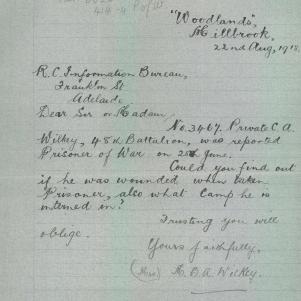 "Woodlands",
Millbrook,
22nd Aug, 1918.
R.C. Information Bureau,
Franklin St
Adelaide
Dear Sir or Madam,
No. 3467. Private C. A.
Wilkey, 48th Battalion, was reported
Prisoner of War on 25th June.
Could you find out
if he was wounded when taken
Prisoner, also what Camp he is
interned in?
Trusting you will
oblige.
Yours faithfully,
(Mrs) A. B. A. Wilkey.